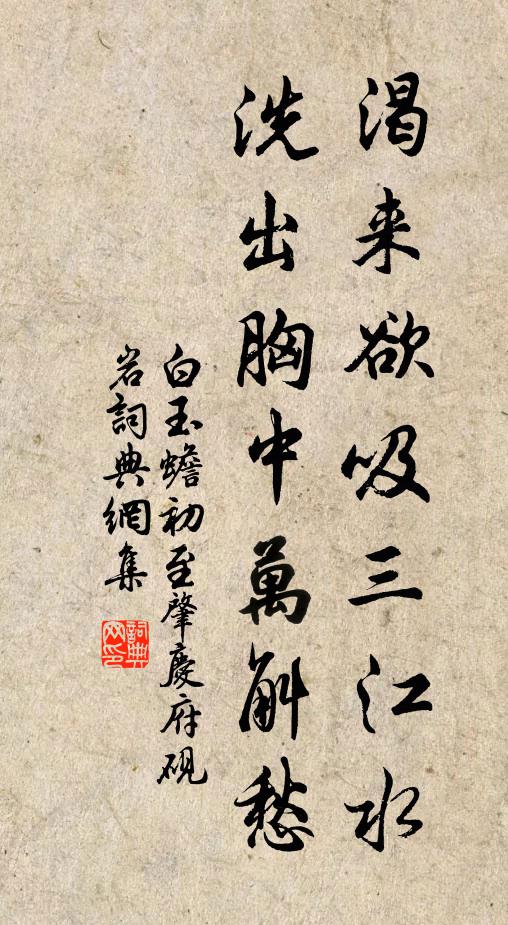 渴来欲吸三江水
洗出胸中萬斛愁
白玉蟾初至肇慶府硯
岩詞典網集
詞典
网印